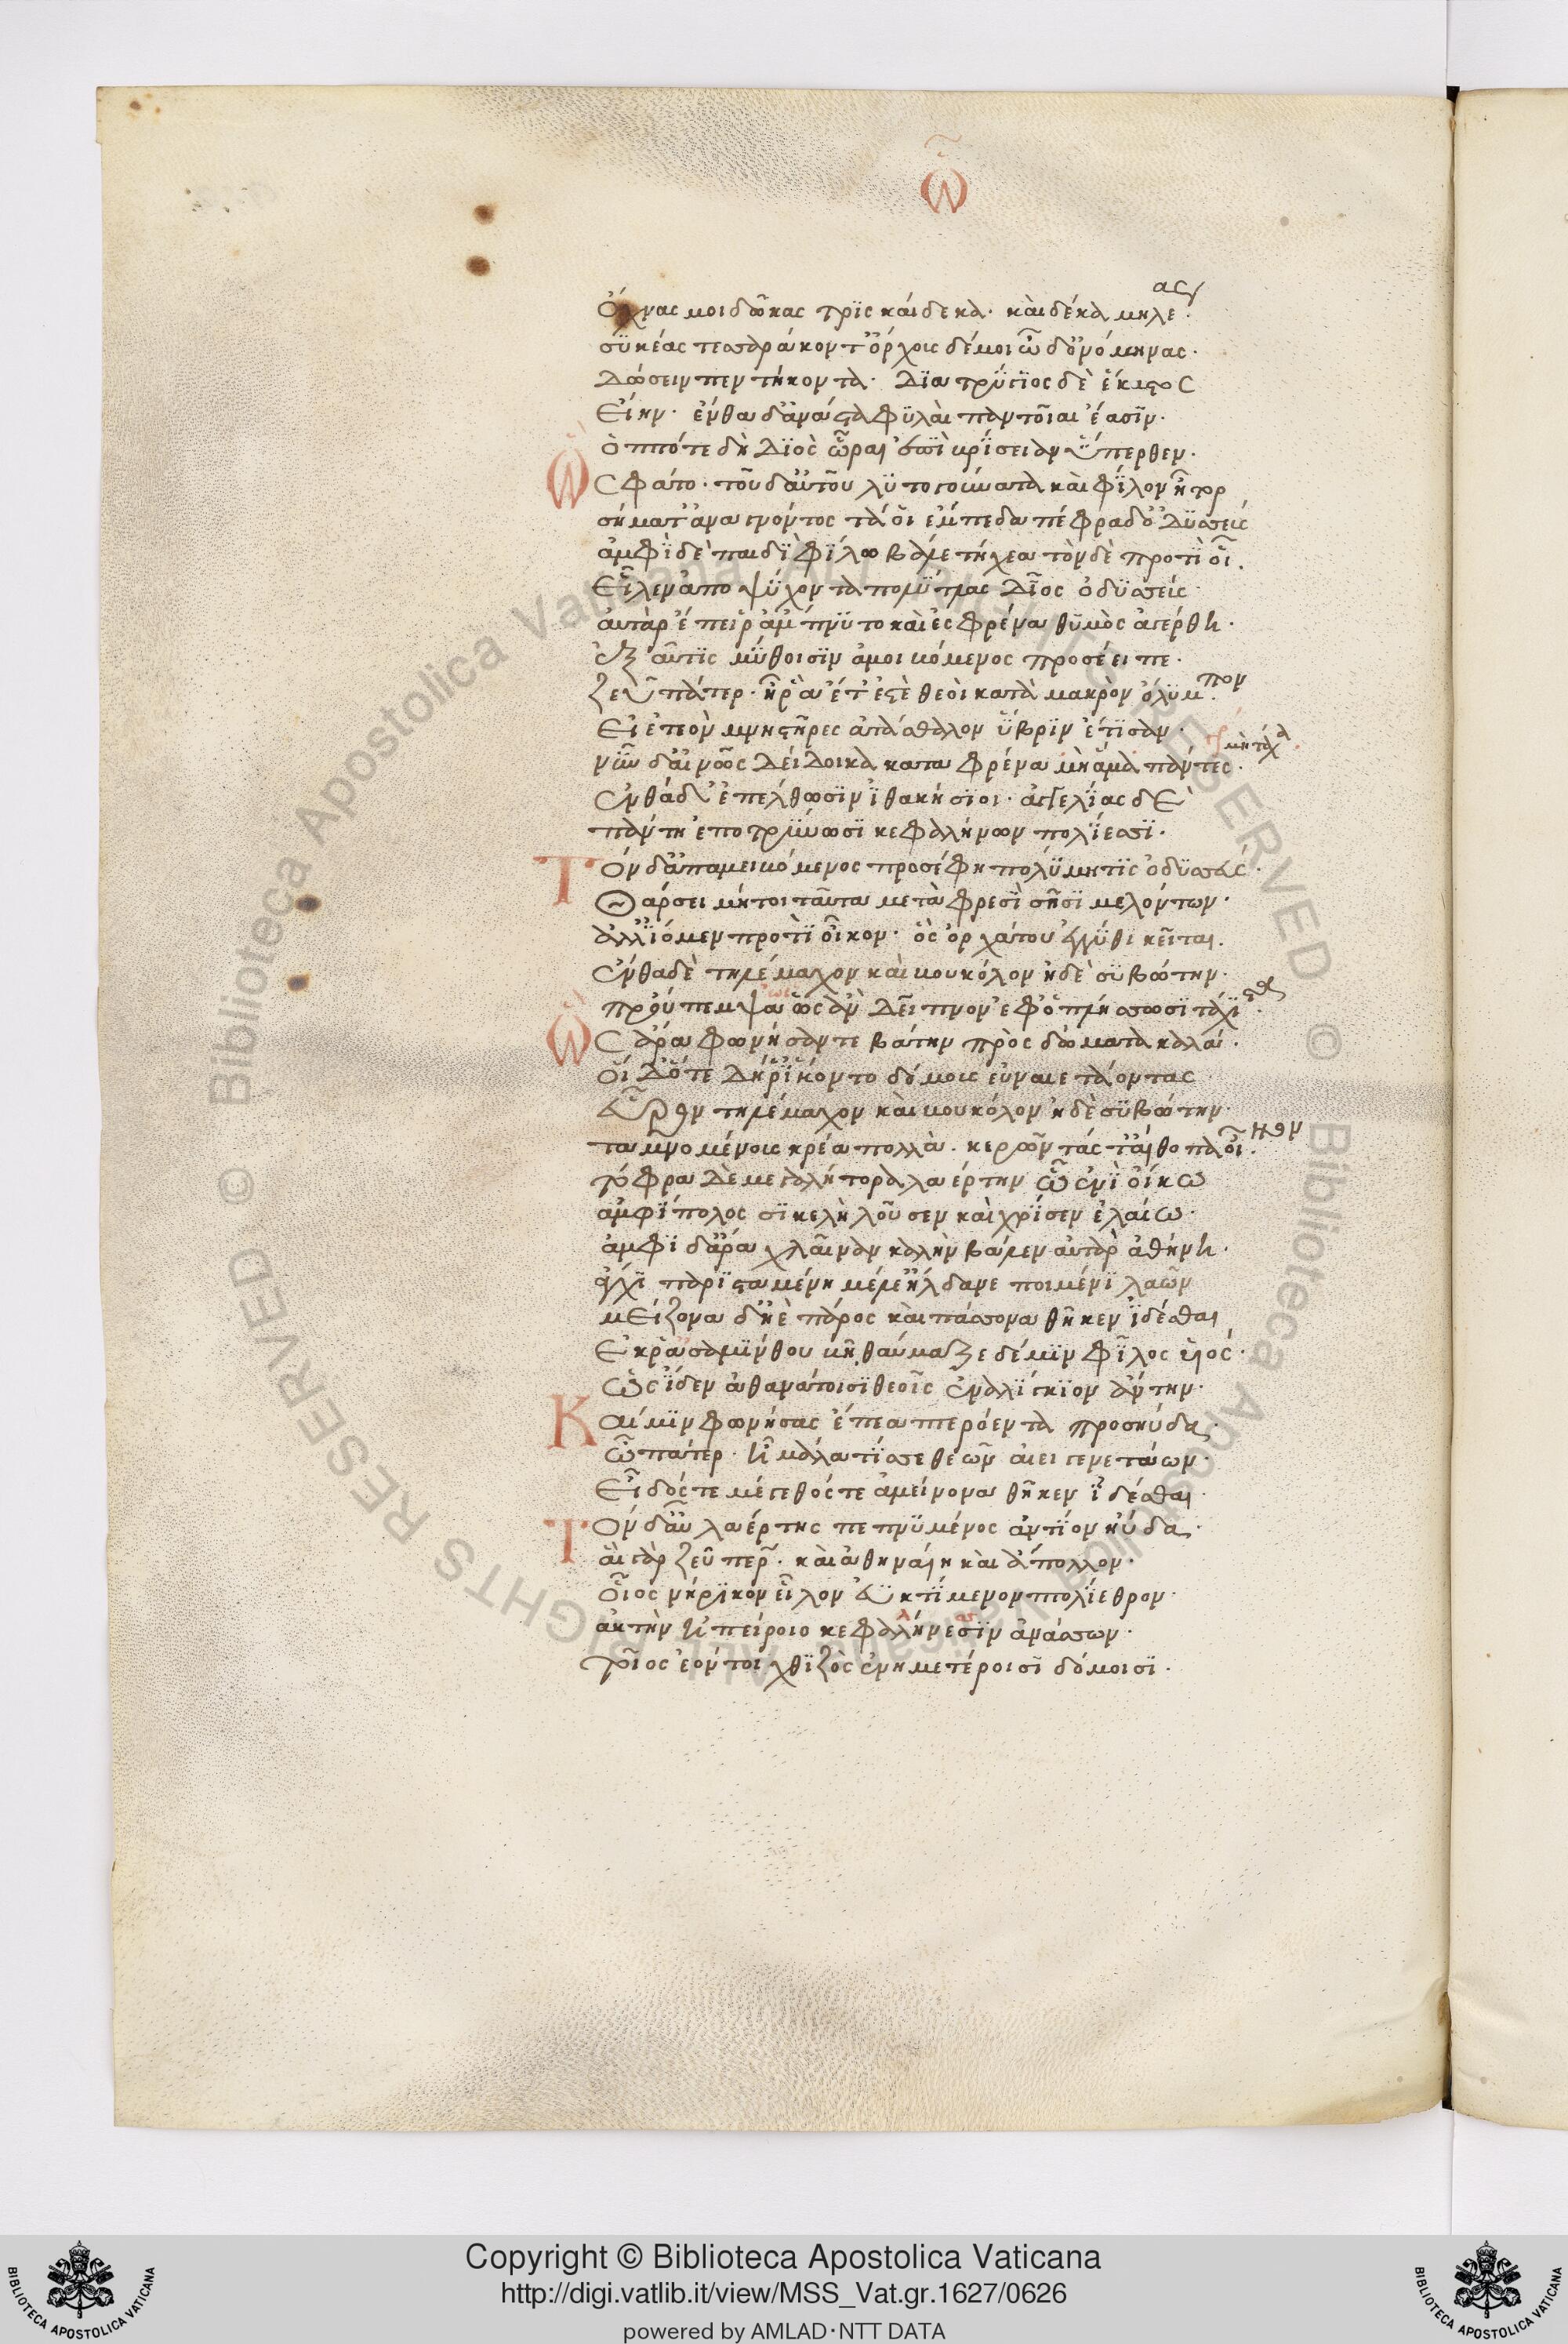 ω̃
Ὄχνας μοι δῶκας τρὶς καίδεκα· καὶ δέκα μηλέας·
συκέας τεσσαράκοντ' ὄρχοις δέ μοι ὧδ' ὀνόμηνας·
Δώσειν πεντήκοντα· Διατρύγιος δὲ ἕκαστος
Εἴην· ἔνθα δ' ἀνὰ σταφυλαὶ παντοῖαι ἔασιν·
ὁππότε δὴ Διὸς ὧραι ἐπιβρίσειαν ὕπερθεν·
Ὣς φάτο· τοῦ δ' αὐτοῦ λύτο γούνατα καὶ φίλον ἦτορ
σήματ' ἀναγνόντος τά οἱ ἔμπεδα πέφραδ' ὀδυσσεύς
ἀμφὶ δὲ παιδὶ φίλω βάλε πήχεα τὸν δὲ προτὶ οἷ.
Εἷλεν ἀποψύχοντα πολύτλας δῖος ὀδυσσεύς·
αὐτὰρ ἐπεί ῥ' ἄμπνυτο καὶ ἐς φρένα θυμὸς ἀγέρθη·
ἐξ αὖτις μύθοισιν ἀμοιβόμενος προσέειπε·
ζεῦ πάτερ· ἦ ῥα ἔτ' ἐστὲ θεοὶ κατὰ μακρὸν ὄλυμπον·
Εἰ ἐτεὸν μνηστῆρες ἀτάσθαλον ὕβριν ἔτισαν·
μὴ τάχα
νῦν δ' αἰνῶς Δείδοικα κατα φρένα μὴ ἅμα πάντες·
ἐνθάδ' ἐπέλθωσιν ἰθακήσιοι· ἀγγελίας δὲ
πάντη ἐποτρύνωσι κεφαλήνων πολίεσσι·
Τὸν δ' ἀπαμειβόμενος προσέφη πολύμητις ὀδυσσεύς·
Θάρσει μή τοι ταῦτα μετὰ φρεσὶ σῆσι μελόντων·
ἀλλ' ἴομεν προτὶ οἶκον· ὃς ὀρχάτου ἐγγύθι κεῖται.
ἔνθα δὲ τηλέμαχον καὶ βουκόλον ἠδὲ συβώτην·
προύπεμψα ὡς ἂν Δεῖπνον ἐφοπλήσσωσι τάχιστα·
Ὣς ἄρα φωνήσαντε βάτην πρὸς δώματα καλά·
Οἱ Δ' ὅτε Δή ῥ' ἵκοντο δόμους εὐναιετάοντας
εὗρον τηλέμαχον καὶ βουκόλον ἠδὲ συβώτην·
ταμνομένους κρέα πολλὰ· κερῶντάς τ' αἴθοπα οἶνον·
τόφρα Δὲ μεγαλήτορα λαέρτην ὧ ἐνὶ οἴκω
ἀμφίπολος σικελὴ λοῦσεν καὶ χρῖσεν ἐλαίω·
ἀμφὶ δ' ἄρα χλαῖναν καλὴν βάλεν αὐτὰρ ἀθήνη·
ἄγχι παρισταμένη μέλε' ἤλδανε ποιμένι λαῶν
μείζονα δ' ἠὲ πάρος καὶ πάσσονα θῆκεν ἰδέσθαι
Ἐκ ρ' ἀσαμίνθου βῆ θαύμαζε δέ μιν φίλος υἱός·
ὡς ἴδεν ἀθανάτοισι θεοῖς ἐναλίγκιον ἄντην·
Καί μιν φωνήσας ἔπεα πτερόεντα προσηύδα·
ὦ πάτερ· ἦ μάλα τίς σε θεῶν αἰειγενετάων·
Εἶδός τε μέγεθός τε ἀμείνονα θῆκεν ἰδέσθαι·
Τὸν δ' αὖ λαέρτης πεπνυμένος ἀντίον ηὔδα·
αἲ γὰρ ζεῦ περ· καὶ ἀθηναίη καὶ ἄπολλον·
οἷος νήρικον εἷλον ἐυκτίμενον πτολίεθρον·
ἀκτὴν ἠπείροιο κεφαλήνεσιν ἀνάσσων·
τοῖος ἐών τοι χθιζὸς ἐν ἡμετέροισι δόμοισι·
© Biblioteca Apostolica Vaticana ALL RIGHTS RESERVED © Biblioteca Apostolica Vaticana ALL RIGHTS RESERVED
Copyright © Biblioteca Apostolica Vaticana
http://digi.vatlib.it/view/MSS_Vat.gr.1627/0626
powered by AMLAD·NTT DATA
BIBLIOTECA APOSTOLICA VATICANA
BIBLIOTECA APOSTOLICA VATICANA